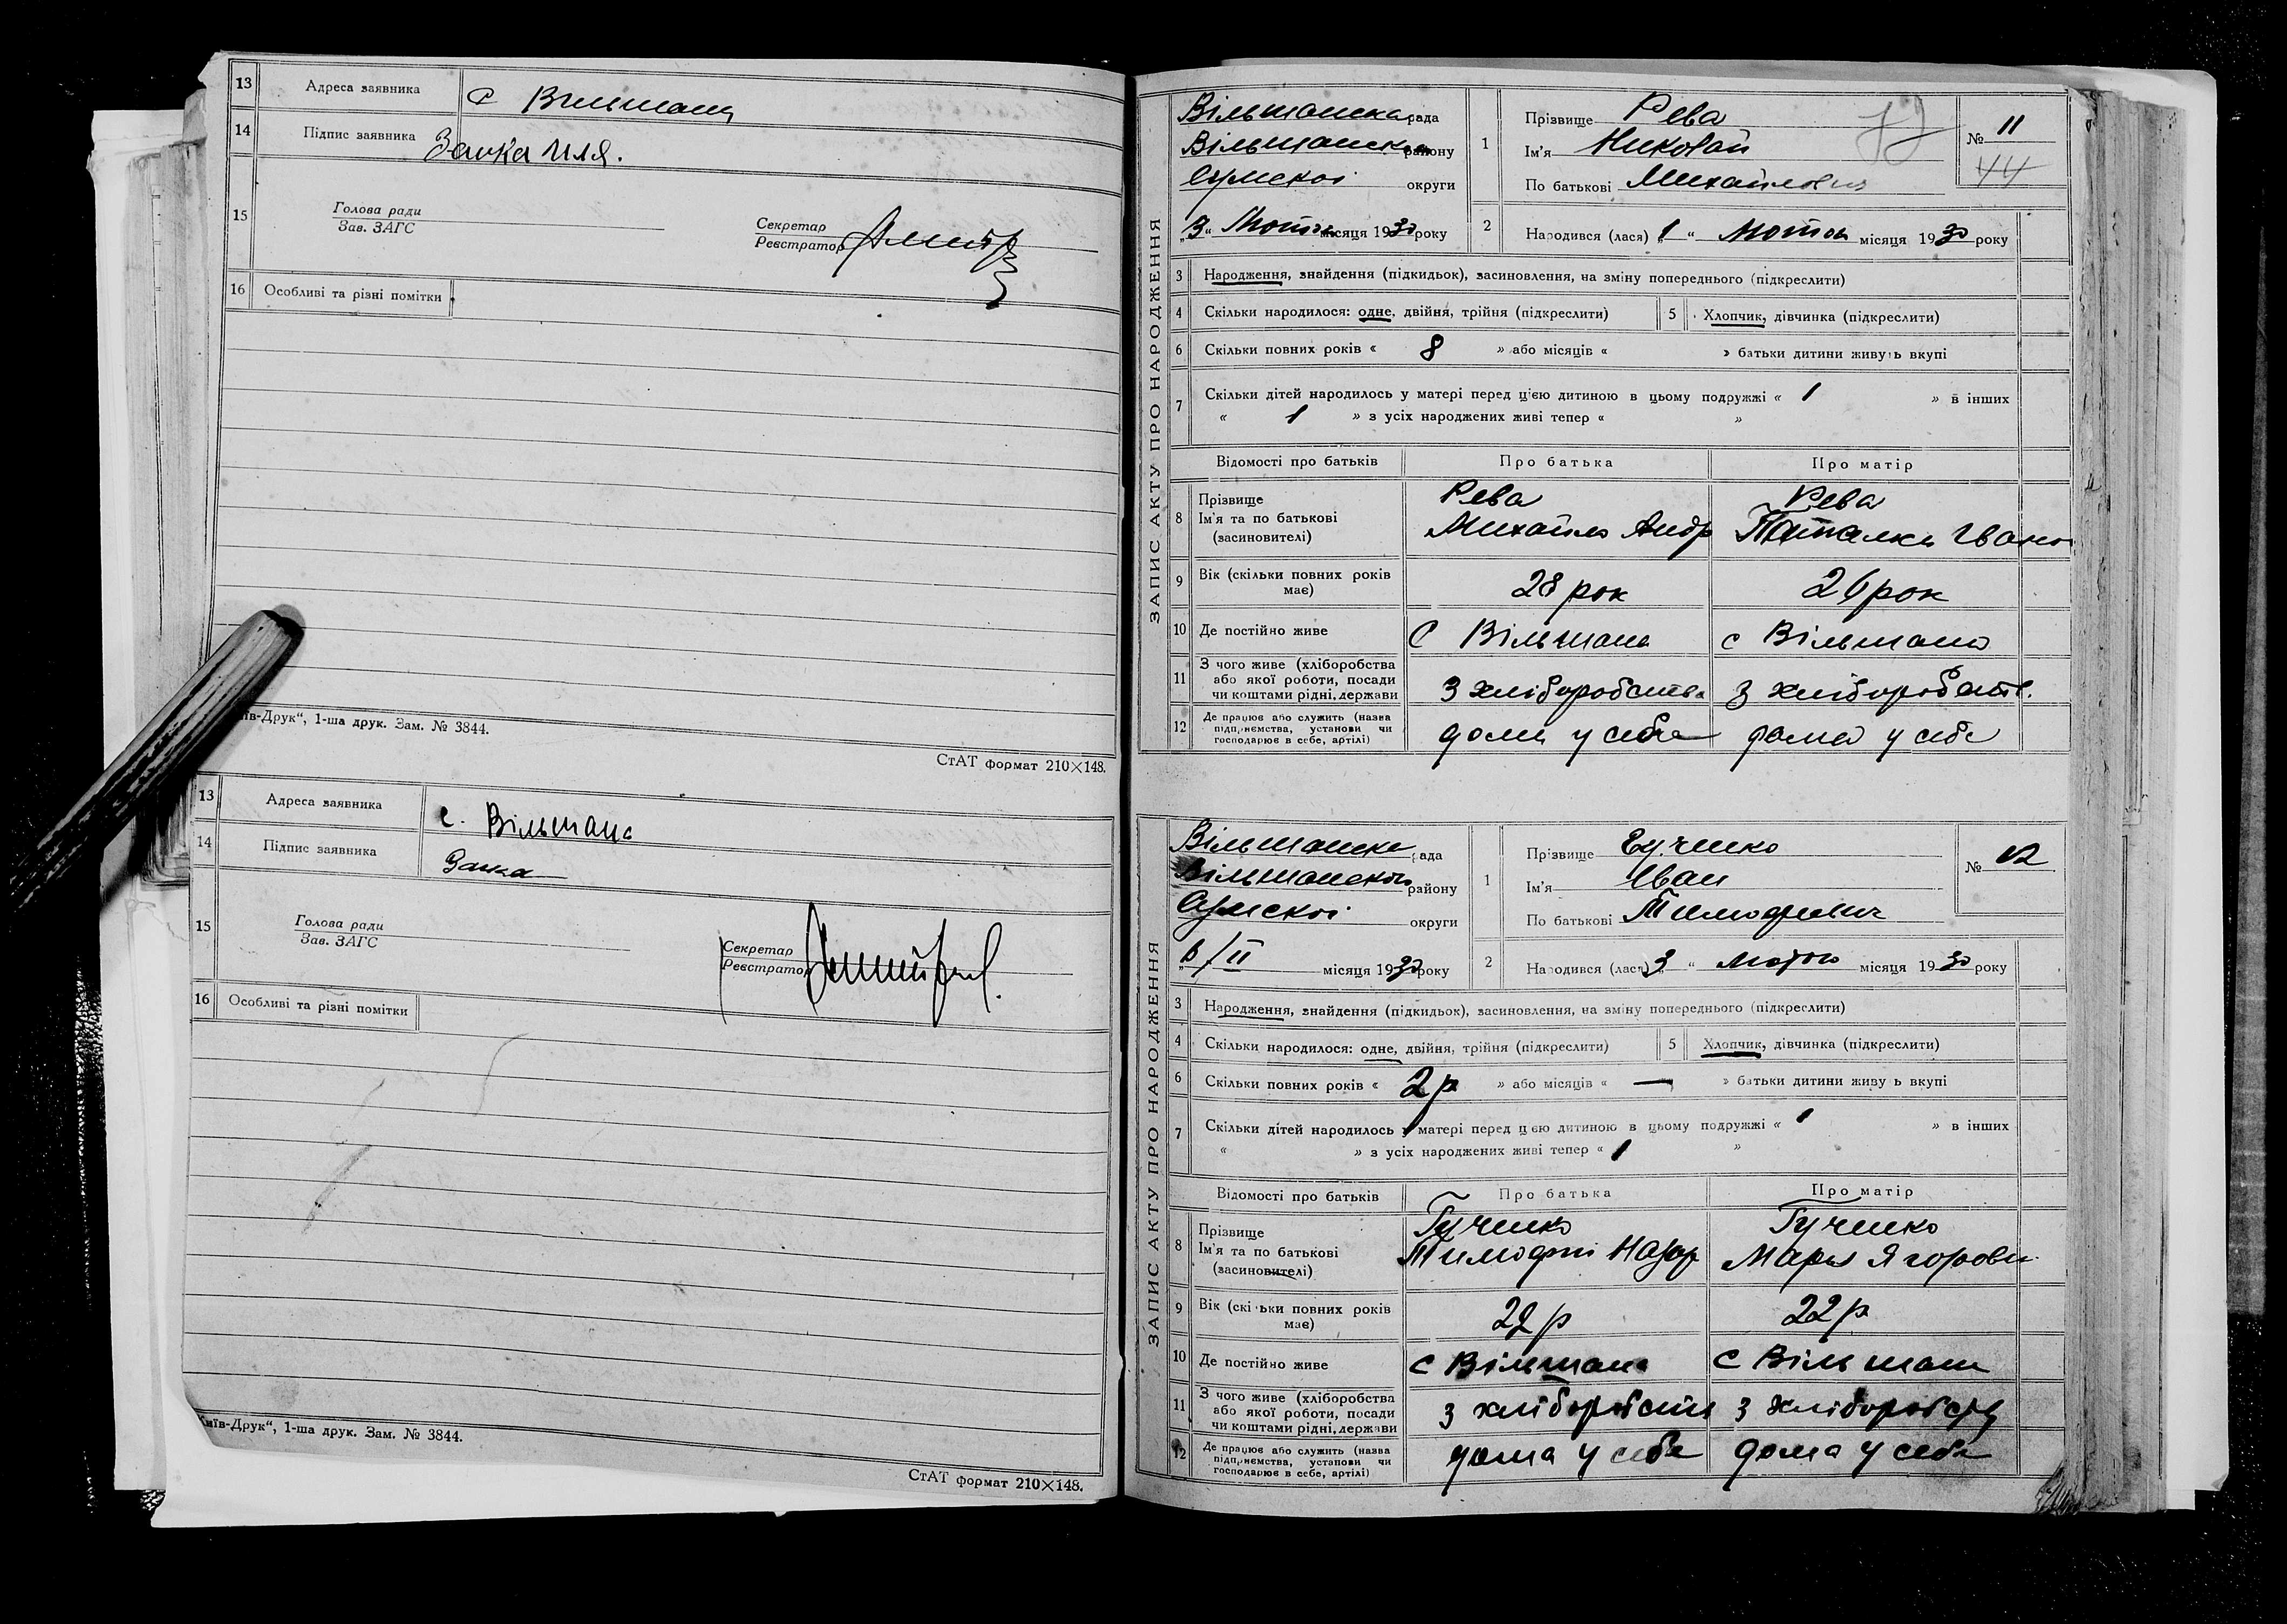 13 Адреса заявника с Вільшани
14 Підпис заявника Заика Иля.
15 Голова ради
Зав. ЗАГС
Секретар
Реєстратор
16 Особливі та різні помітки
їв-Друк“, 1-ша друк. Зам. № 3844.
СтАТ формат 210×148.
13 Адреса заявника с. Вільшана
14 Підпис заявника Заика
15 Голова ради
Зав. ЗАГС
Секретар
Реєстратор
16 Особливі та різні помітки
Київ-Друк“, 1-ша друк. Зам. № 3844.
СтАТ формат 210×148.
ЗАПИС АКТУ ПРО НАРОДЖЕННЯ
Вільшанска рада
Вільшанско району
Сумскоі округи
„3“ Лютого місяця 1930 року
1 Прізвище Рева
Ім'я Николай
По батькові Михайлович
№ 11
44
2 Народився (лася) „1“ Лютого місяця 1930 року
3 Народження, знайдення (підкидьок), засиновлення, на зміну попереднього (підкреслити)
4 Скільки народилося: одне, двійня, трійня (підкреслити) 5 Хлопчик, дівчинка (підкреслити)
6 Скільки повних років « 8 » або місяців « » батьки дитини живуть вкупі
7 Скільки дітей народилось у матері перед цією дитиною в цьому подружжі « 1 » в інших
« 1 » з усіх народжених живі тепер « »
Відомості про батьків Про батька Про матір
8 Прізвище Рева Рева
Ім'я та по батькові Михайло Андр Наталка Івано
(засиновителі)
9 Вік (скільки повних років має) 28 рок 26 рок
10 Де постійно живе С Вільшана с Вільшана
11 З чого живе (хліборобства або якої роботи, посади чи коштами рідні, держави З хліборобства З хліборобств.
12 Де працює або служить (назва підприємства, установи чи господарює в себе, артілі) дома у себе дома у себе
ЗАПИС АКТУ ПРО НАРОДЖЕННЯ
Вільшанска рада
Вільшанскоі району
Сумскоі округи
„6/II місяця 1930 року
1 Прізвище Гученко
Ім'я Іван
По батькові Тимофієвич
№ 12
2 Народився (лася) „3“ Лютого місяця 1930 року
3 Народження, знайдення (підкидьок), засиновлення, на зміну попереднього (підкреслити)
4 Скільки народилося: одне, двійня, трійня (підкреслити) 5 Хлопчик, дівчинка (підкреслити)
6 Скільки повних років « 2 р » або місяців « — » батьки дитини живуть вкупі
7 Скільки дітей народилось у матері перед цією дитиною в цьому подружжі « 1 » в інших
« » з усіх народжених живі тепер « 1 »
Відомості про батьків Про батька Про матір
8 Прізвище Гученко Гученко
Ім'я та по батькові Тимофій Назар Марья Ягоровн
(засиновителі)
9 Вік (скільки повних років має) 22 р 22 р
10 Де постійно живе с Вільшана с Вільшан
11 З чого живе (хліборобства або якої роботи, посади чи коштами рідні, держави З хліборобств З хліборобств
12 Де працює або служить (назва підприємства, установи чи господарює в себе, артілі) дома у себе дома у себе